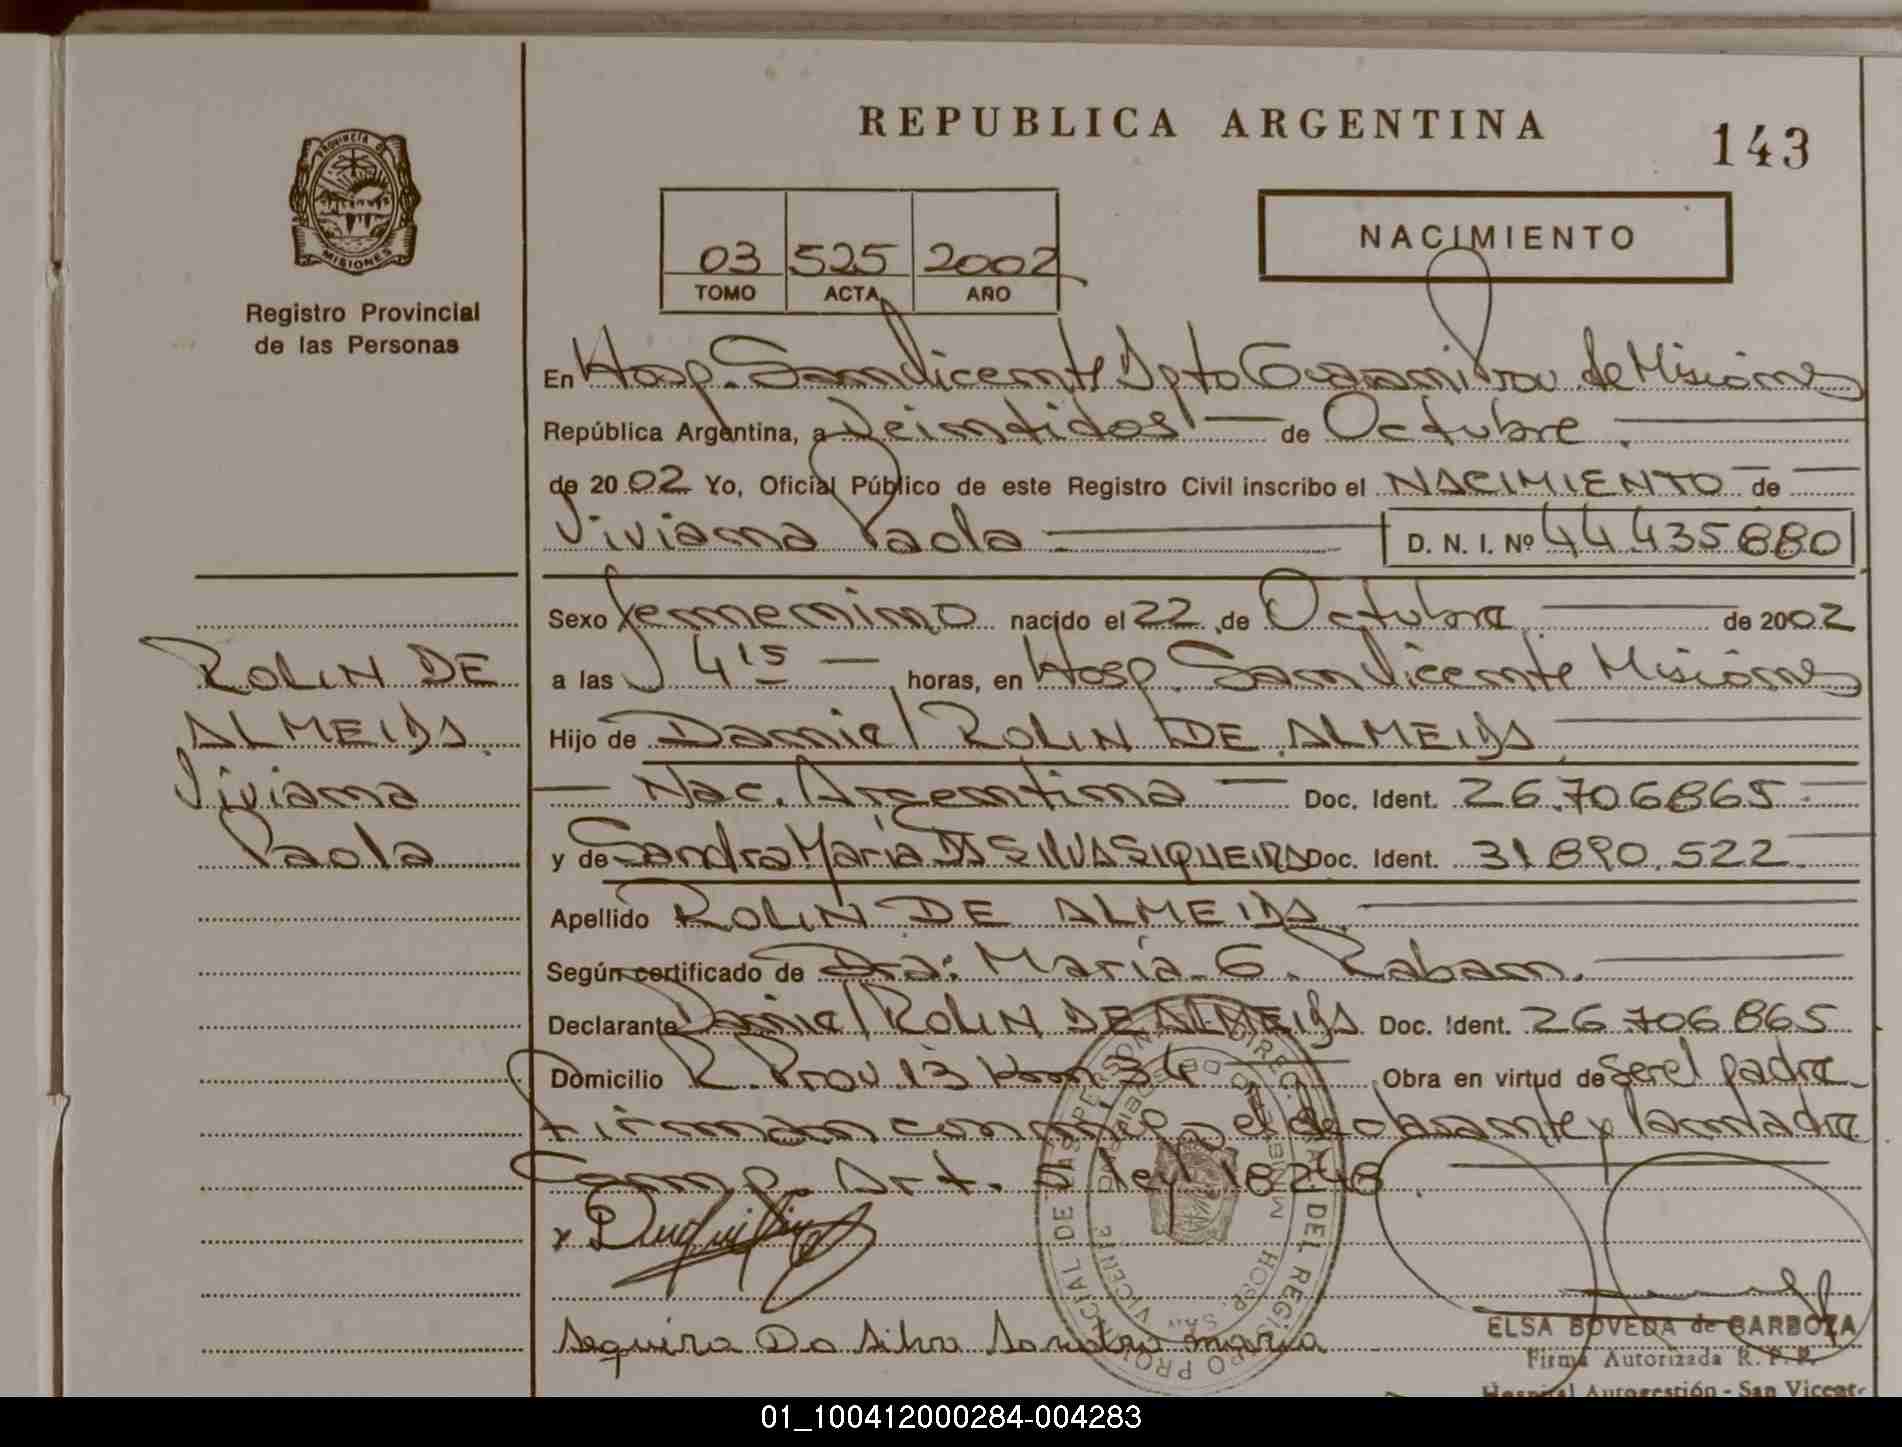 REPUBLICA ARGENTINA
143
PROVINCIA DE
MISIONES
Registro Provincial
de las Personas
03 525 2002
TOMO ACTA AÑO
NACIMIENTO
En Hosp. San Vicente Dpto Guaraní Prov. de Misiones
República Argentina, a Veintidos de Octubre
de 2002 Yo, Oficial Público de este Registro Civil inscribo el NACIMIENTO de
Viviana Paola D. N. I. Nº 44.435880
Sexo femenino nacido el 22 de Octubre de 2002
a las 4 15 horas, en Hosp. San Vicente Misiones
Hijo de Daniel ROLIN DE ALMEIDA
Nac. Argentina Doc. Ident. 26.706865
y de Sandra María DA SILVA SIQUEIRA Doc. Ident. 31890.522
Apellido ROLIN DE ALMEIDA
Según certificado de Dra: María G. Raban.
Declarante Daniel ROLIN DE ALMEIDA Doc. Ident. 26706865
Domicilio R. Prov. 13 Km 34 Obra en virtud de ser el padre
Firman conmigo el declarante y la madre
Comp. Art. 5 ley 18248
ROLIN DE
ALMEIDA
Viviana
Paola
Sequira Da Silva Sandra maria
DIREC. GRAL. DEL REGISTRO PROVINCIAL DE LAS PERSONAS
HOSP. SAN VICENTE
ELSA BOVEDA de BARBOZA
Firma Autorizada R. P. P.
Hospital Autogestión - San Vicente
01_100412000284-004283